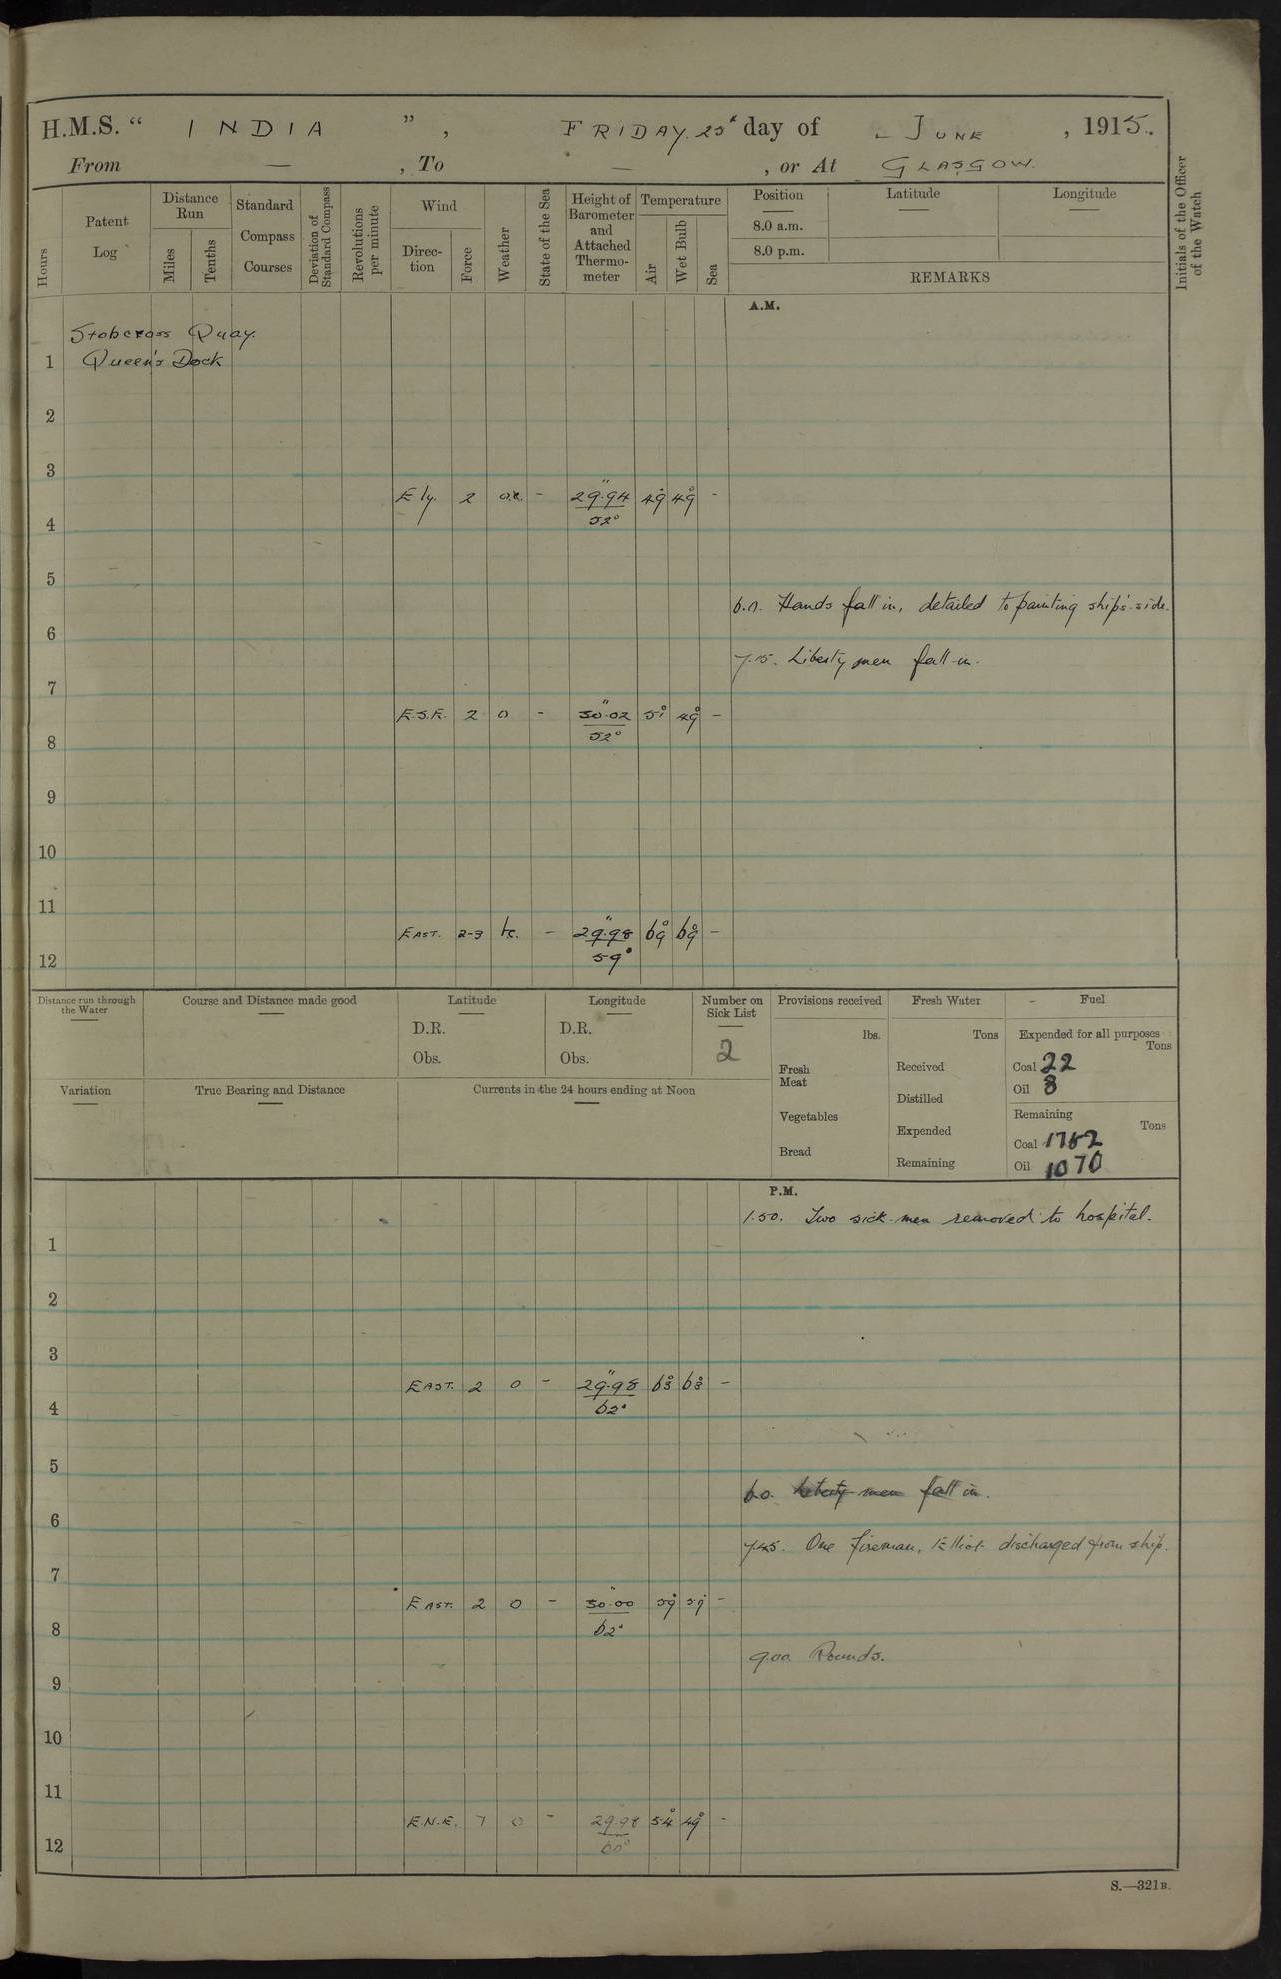 H.M.S. “ INDIA ” , FRIDAY. 25th day of JUNE , 1915.
From — , To — , or At GLASGOW.
Hours
Patent Log
Distance Run
Miles
Tenths
Standard Compass Courses
Deviation of Standard Compass
Revolutions per minute
Wind
Direction
Force
Weather
State of the Sea
Height of Barometer and Attached Thermometer
Temperature
Air
Wet Bulb
Sea
Position
8.0 a.m.
8.0 p.m.
Latitude
Longitude
REMARKS
Initials of the Officer of the Watch
A.M.
Stobcross Quay.
1 Queen's Dock
2
3
E'ly. 2 o.c. - 29.94" 49° 49° -
52°
4
5
6.0. Hands fall in, detailed to painting ship's side.
6
7.15. Liberty men fall in.
7
E.S.E. 2 0 - 30.02" 51° 49° -
52°
8
9
10
11
EAST. 2-3 bc. - 29.98" 69° 69° -
59°
12
Distance run through the Water
Course and Distance made good
Latitude
D.R.
Obs.
Longitude
D.R.
Obs.
Number on Sick List
2
Provisions received
lbs.
Fresh Meat
Vegetables
Bread
Fresh Water
Tons
Received
Distilled
Expended
Remaining
Fuel
Expended for all purposes
Tons
Coal 22
Oil 8
Remaining
Tons
Coal 1762
Oil 1070
Variation
True Bearing and Distance
Currents in the 24 hours ending at Noon
P.M.
1.50. Two sick men removed to hospital.
1
2
3
EAST. 2 0 - 29.98" 63° 63° -
62°
4
5
6.0. Liberty men fall in.
6
7.45. One fireman, Elliot discharged from ship.
7
EAST. 2 0 - 30.00" 59° 59° -
62°
8
9.00. Rounds.
9
10
11
E.N.E. 1 0 - 29.98 54° 49° -
60°
12
S.—321B.